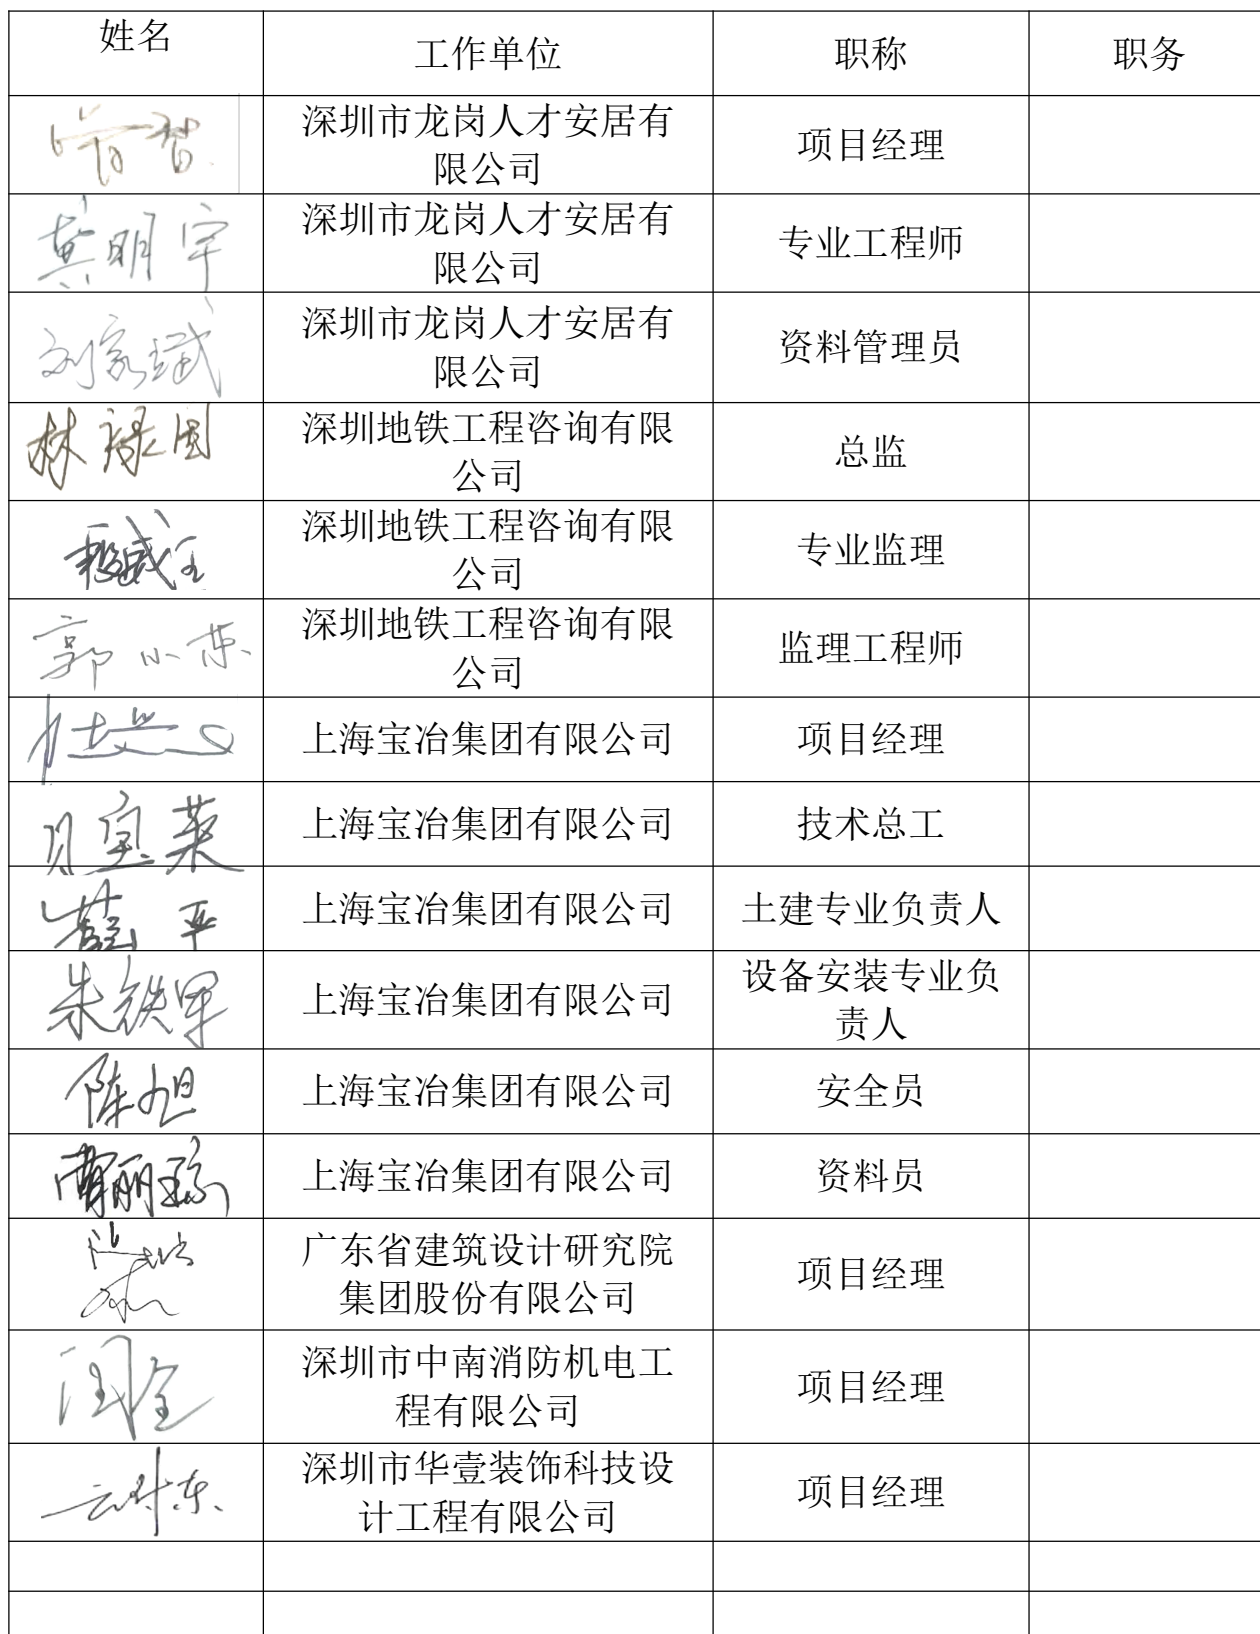 姓名 工作单位 职称 职务
深圳市龙岗人才安居有
限公司
项目经理
黄明宇
深圳市龙岗人才安居有
限公司
专业工程师
刘家斌
深圳市龙岗人才安居有
限公司
资料管理员
林禄国
深圳地铁工程咨询有限
公司
总监
深圳地铁工程咨询有限
公司
专业监理
郭小东
深圳地铁工程咨询有限
公司
监理工程师
上海宝冶集团有限公司 项目经理
上海宝冶集团有限公司 技术总工
上海宝冶集团有限公司 土建专业负责人
朱铁军
上海宝冶集团有限公司
设备安装专业负
责人
陈旭 上海宝冶集团有限公司 安全员
上海宝冶集团有限公司 资料员
广东省建筑设计研究院
集团股份有限公司
项目经理
深圳市中南消防机电工
程有限公司
项目经理
深圳市华壹装饰科技设
计工程有限公司
项目经理